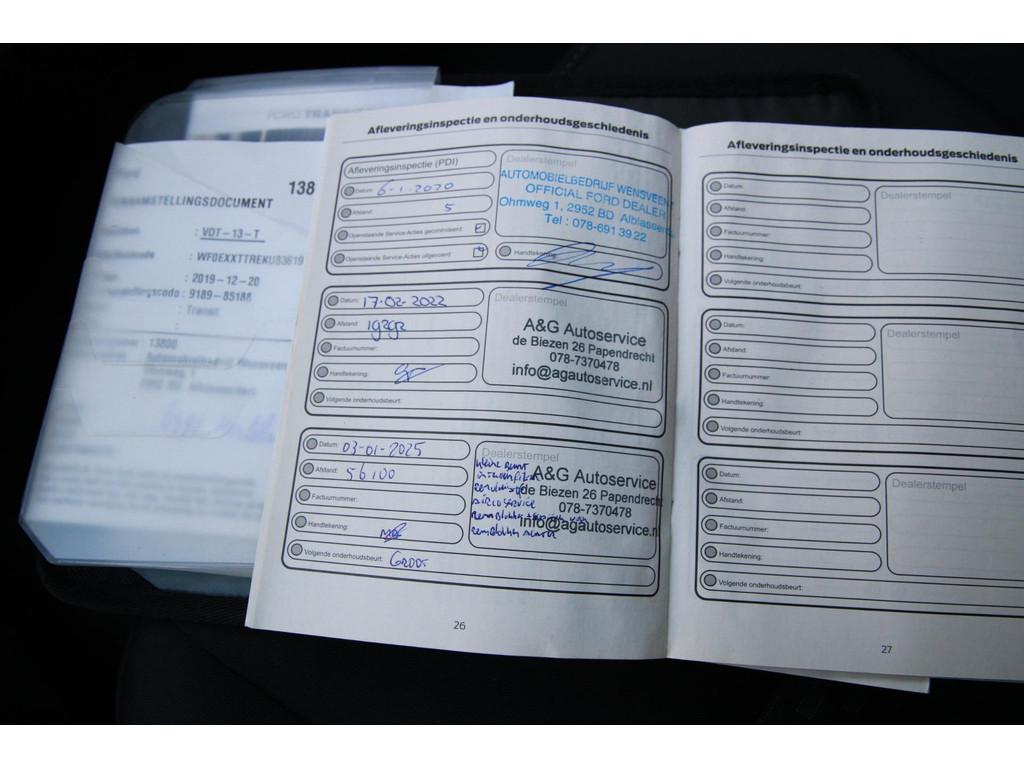 FORD TRANSIT
138
VDT-13-T
WF0EXXTTREKU83619
: 2019-12-20
: 9189-85188
: Transit
: 13800
Afleveringsinspectie en onderhoudsgeschiedenis
Afleveringsinspectie (PDI)
Datum: 6-1-2020
Afstand: 5
Openstaande Service-Acties gecontroleerd:
Openstaande Service-Acties uitgevoerd:
Dealerstempel
AUTOMOBIELBEDRIJF WENSVEEN
OFFICIAL FORD DEALER
Ohmweg 1, 2952 BD Alblasser
Tel : 078-691 39 22
Handtekening:
Datum: 17-02-2022
Afstand: 19292
Factuurnummer:
Handtekening:
Volgende onderhoudsbeurt:
Dealerstempel
A&G Autoservice
de Biezen 26 Papendrecht
078-7370478
info@agautoservice.nl
Datum: 03-01-2025
Afstand: 56100
Factuurnummer:
Handtekening:
Volgende onderhoudsbeurt: GROOT
Dealerstempel
Kleine Beurt
A&G Autoservice
de Biezen 26 Papendrecht
AIRCO SERVICE
078-7370478
info@agautoservice.nl
26
Afleveringsinspectie en onderhoudsgeschiedenis
Datum:
Afstand:
Factuurnummer:
Handtekening:
Volgende onderhoudsbeurt:
Dealerstempel
Datum:
Afstand:
Factuurnummer:
Handtekening:
Volgende onderhoudsbeurt:
Dealerstempel
Datum:
Afstand:
Factuurnummer:
Handtekening:
Volgende onderhoudsbeurt:
Dealerstempel
27